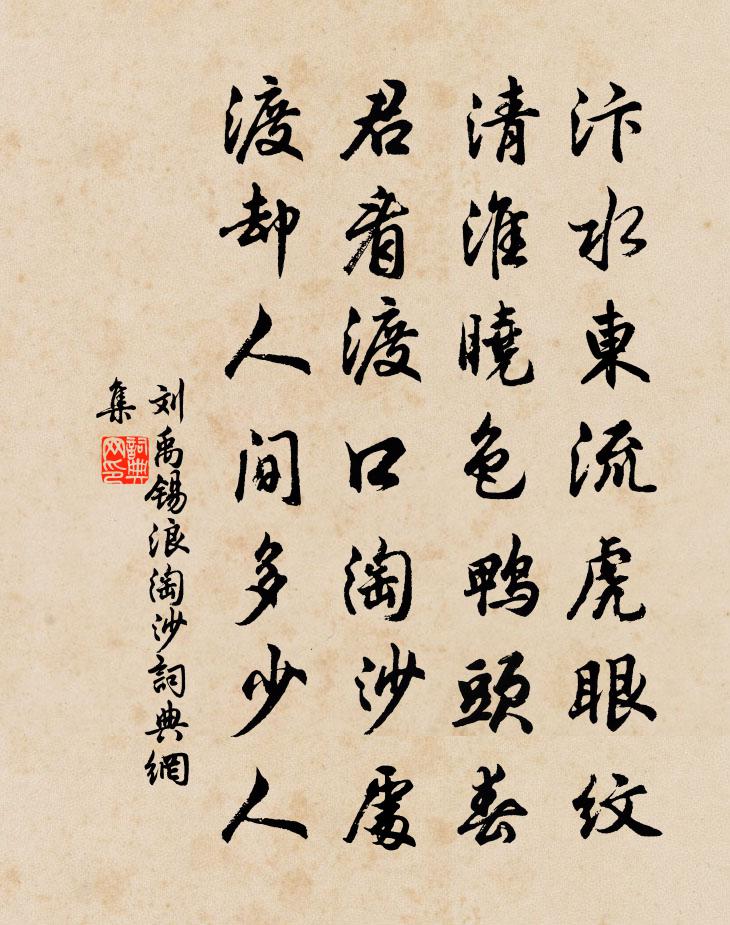 汴水東流虎眼紋
清淮曉色鴨頭春
君看渡口淘沙處
渡却人间多少人
刘禹锡浪淘沙詞典網
集
詞典
网印